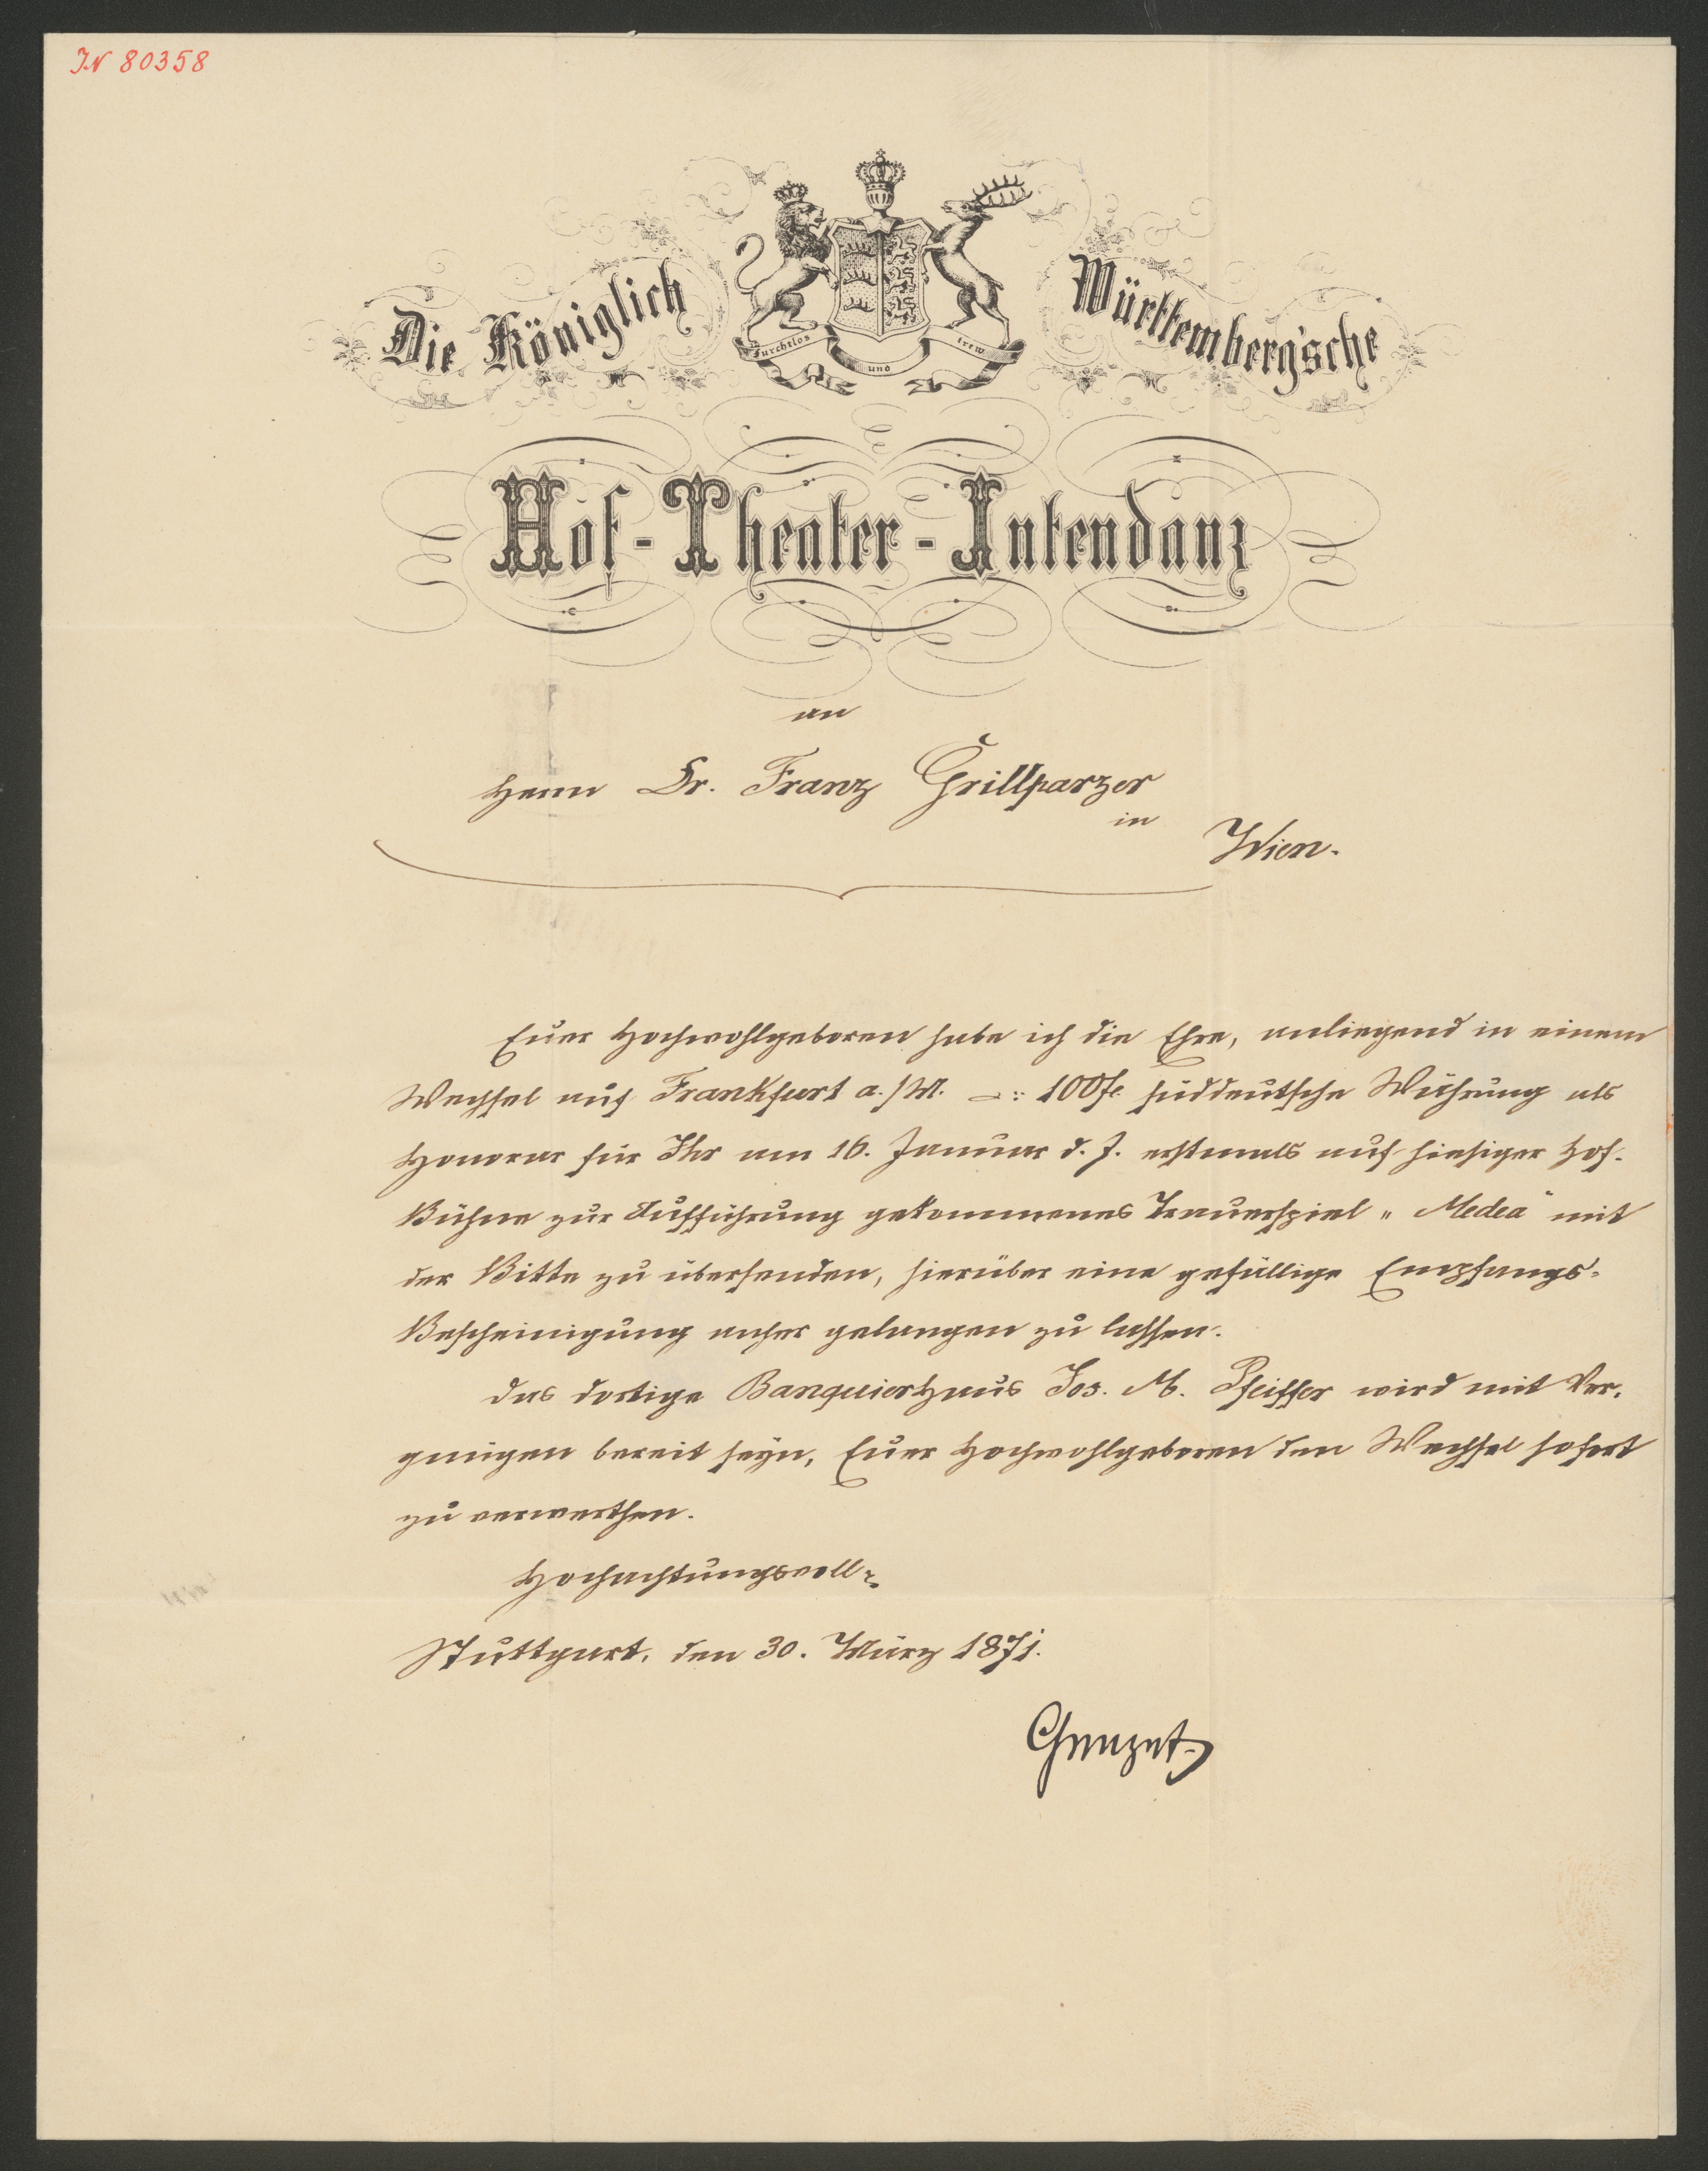 IN 80358
Die Königlich Württemberg'sche
Furchtlos und trew
Hof-Theater-Intendanz
an
Herrn Dr. Franz Grillparzer
in
Wien.
Euer Hochwohlgeboren habe ich die Ehre, anliegend in einem
Wechsel auf Frankfurt a./M. –: 100 f. süddeutsche Währung als
Honorar für Ihr am 16. Januar d. J. erstmals auf hiesiger Hof-
Bühne zur Aufführung gekommenes Trauerspiel „Medea“ mit
der Bitte zu übersenden, hierüber eine gefällige Empfangs-
Bescheinigung anher gelangen zu lassen.
Das dortige Banquierhaus Jos. M. Pfeiffer wird mit Ver-
gnügen bereit seyn, Euer Hochwohlgeboren den Wechsel sofort
zu verwerthen.
Hochachtungsvoll
Stuttgart, den 30. März 1871.